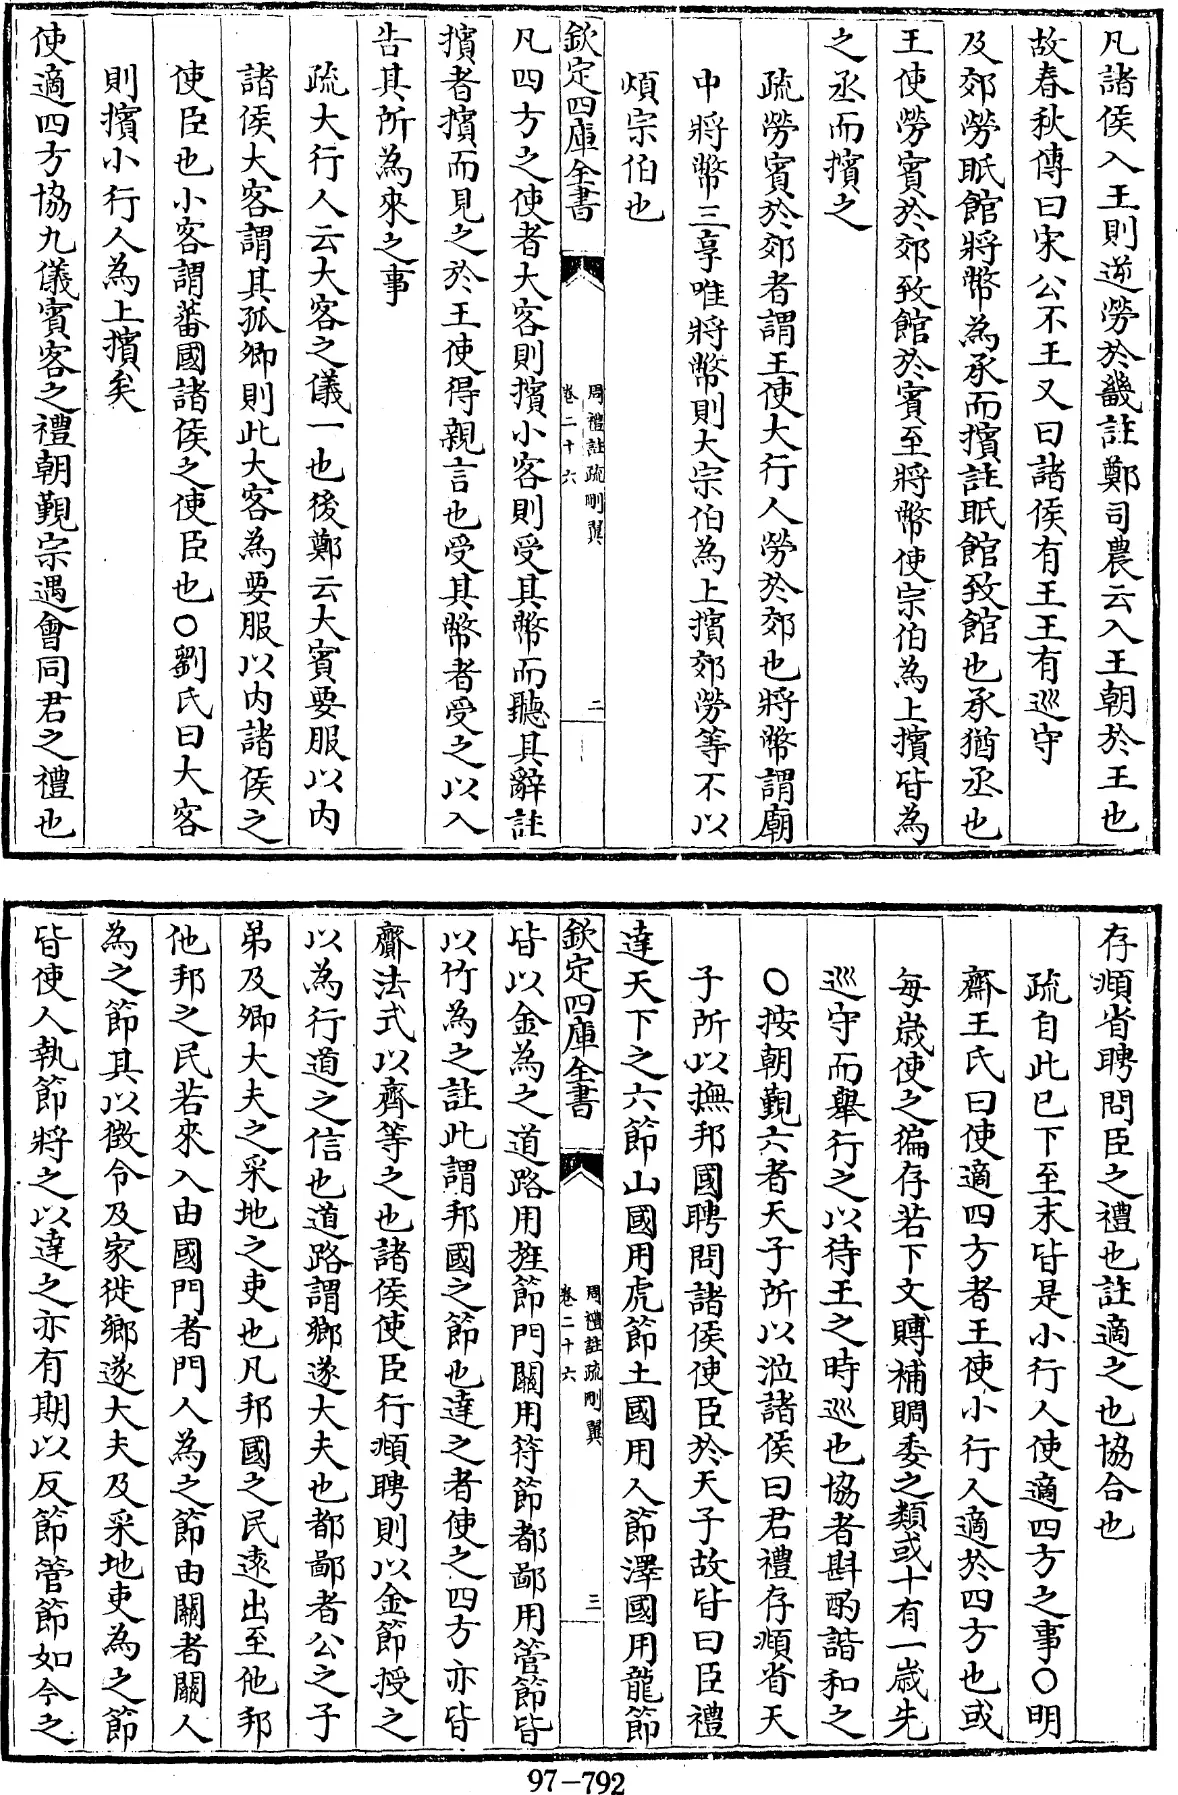 凡諸侯入王則逆勞於畿註鄭司農云入王朝於王也
故春秋傳曰宋公不王又曰諸侯有王王有巡守
及郊勞眂館將幣為承而擯註眂館致館也承猶丞也
王使勞賓於郊致館於賓至將幣使宗伯為上擯皆為
之丞而擯之
疏勞賓於郊者謂王使大行人勞於郊也將幣謂廟
中將幣三享唯將幣則大宗伯為上擯郊勞等不以
煩宗伯也
欽定四庫全書
周禮註疏刪翼
卷二十六
二
凡四方之使者大客則擯小客則受其幣而聽其辭註
擯者擯而見之於王使得親言也受其幣者受之以入
告其所為來之事
疏大行人云大客之儀一也後鄭云大賓要服以內
諸侯大客謂其孤卿則此大客為要服以內諸侯之
使臣也小客謂蕃國諸侯之使臣也○劉氏曰大客
則擯小行人為上擯矣
使適四方協九儀賓客之禮朝覲宗遇會同君之禮也
存頫省聘問臣之禮也註適之也協合也
疏自此已下至末皆是小行人使適四方之事○明
齋王氏曰使適四方者王使小行人適於四方也或
每歲使之徧存若下文賻補賙委之類或十有一歲先
巡守而舉行之以待王之時巡也協者斟酌諧和之
○按朝覲六者天子所以涖諸侯曰君禮存頫省天
子所以撫邦國聘問諸侯使臣於天子故皆曰臣禮
達天下之六節山國用虎節土國用人節澤國用龍節
欽定四庫全書
周禮註疏刪翼
卷二十六
三
皆以金為之道路用旌節門關用符節都鄙用管節皆
以竹為之註此謂邦國之節也達之者使之四方亦皆
齎法式以齊等之也諸侯使臣行頫聘則以金節授之
以為行道之信也道路謂鄉遂大夫也都鄙者公之子
弟及卿大夫之采地之吏也凡邦國之民遠出至他邦
他邦之民若來入由國門者門人為之節由關者關人
為之節其以徵令及家徙鄉遂大夫及采地吏為之節
皆使人執節將之以達之亦有期以反節管節如今之
97-792